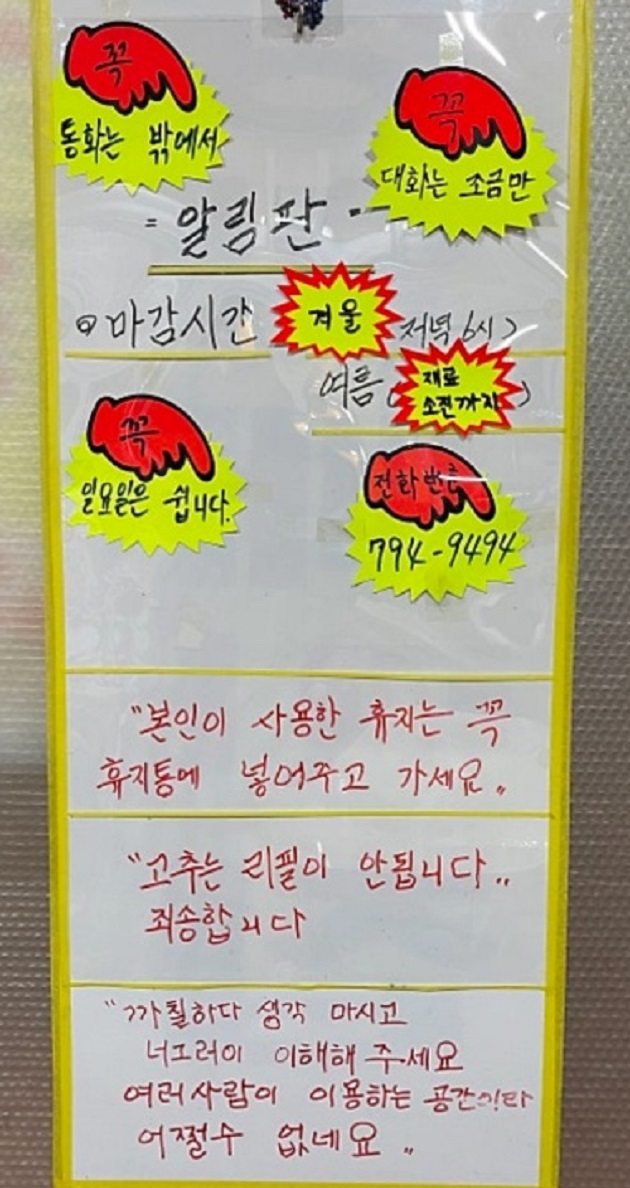 꼭
통화는 밖에서
꼭
대화는 조금만
= 알림판 =
마감시간 겨울 저녁 6시)
여름 (재료
소진까지)
꼭
일요일은 쉽니다.
전화번호
794-9494
"본인이 사용한 휴지는 꼭
휴지통에 넣어주고 가세요."
"고추는 리필이 안됩니다.."
죄송합니다
"까칠하다 생각 마시고
너그러이 이해해 주세요
여러사람이 이용하는 공간이라
어쩔수 없네요."